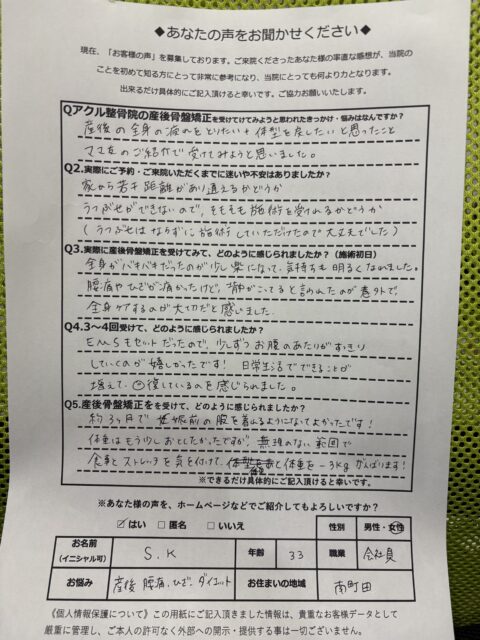 ◆あなたの声をお聞かせください◆
現在、「お客様の声」を募集しております。ご来院くださったあなた様の率直な感想が、当院の
ことを初めて知る方にとって非常に参考になり、当院にとっても何より力となります。
出来るだけ具体的にご記入頂けると幸いです。ご協力お願いいたします。
Qアクル整骨院の産後骨盤矯正を受けてみようと思われたきっかけ・悩みはなんですか?
産後の全身の疲れをとりたい+体型を戻したいと思ったこと
ママ友のご紹介で受けてみようと思いました。
Q2.実際にご予約・ご来院いただくまでに迷いや不安はありましたか?
家から若干距離があり通えるかどうか
うつぶせができないので、そもそも施術を受けれるかどうか
(うつぶせはならずに施術していただけたので大丈夫でした)
Q3.実際に産後骨盤矯正を受けてみて、どのように感じられましたか?(施術初日)
全身がバキバキだったのが少し楽になって、気持ちも明るくなりました。
腰痛やひざが痛かったけど、背中がこってると言われたのが意外で、
全身ケアするのが大切だと感じました。
Q4.3~4回受けて、どのように感じられましたか?
EMSもセットだったので、少しずつお腹のあたりがすっきり
していくのが嬉しかったです! 日常生活でできることが
増えて、回復しているのを感じられました。
Q5.産後骨盤矯正をを受けて、どのように感じられましたか?
約3ヶ月で妊娠前の服を着れるようになってよかったです!
体重はもう少しおとしたかったですが、無理のない範囲で
食事とストレッチを気を付けて、体重を-3kgがんばります!
※できるだけ具体的にご記入頂けると幸いです。
※あなた様の声を、ホームページなどでご紹介してもよろしいですか?
☑はい □匿名 □いいえ
性別 男性・女性
お名前
(イニシャル可) S.K 年齢 33 職業 会社員
お悩み 産後 腰痛、ひざ、ダイエット お住まいの地域 南町田
《個人情報保護について》この用紙にご記入頂きました情報は、貴重なお客様データとして
厳重に管理し、ご本人の許可なく外部への開示・提供する事は一切ございません。